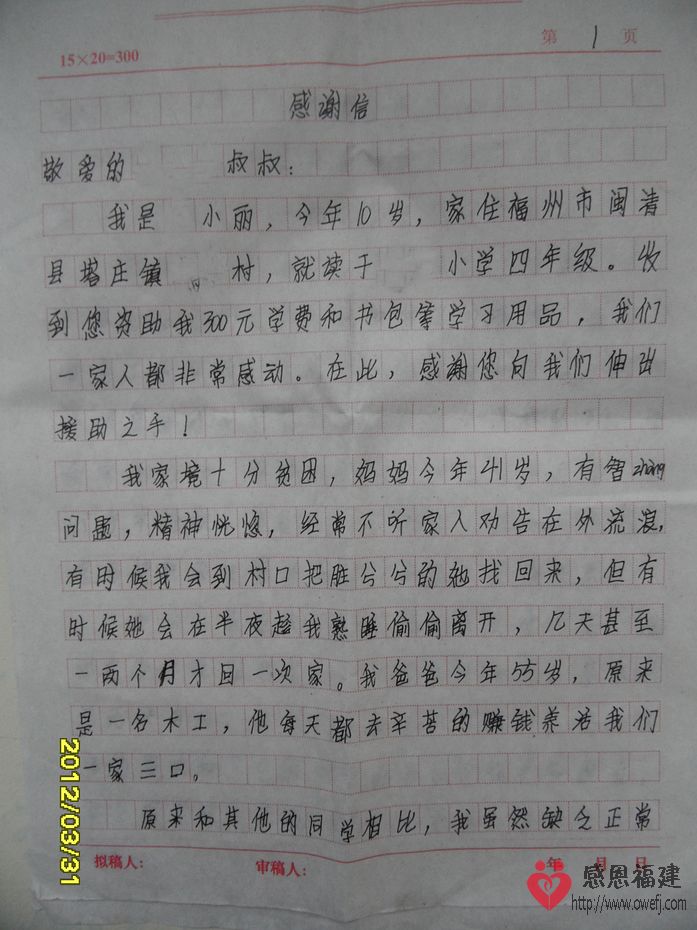 第 1 页
15×20=300
感谢信
敬爱的 叔叔：
我是 小丽，今年10岁，家住福州市闽清
县塔庄镇 村，就读于 小学四年级。收
到您资助我300元学费和书包等学习用品，我们
一家人都非常感动。在此，感谢您向我们伸出
援助之手！
我家境十分贫困，妈妈今年41岁，有智zhàng
问题，精神恍惚，经常不听家人劝告在外流浪，
有时候我会到村口把脏兮兮的她找回来，但有
时候她会在半夜趁我熟睡偷偷离开，几天甚至
一两个月才回一次家。我爸爸今年55岁，原来
是一名木工，他每天都去辛苦的赚钱养活我们
一家三口。
原来和其他的同学相比，我虽然缺乏正常
拟稿人： 审稿人： 年 月 日
2012/03/31
感恩福建
http://www.owefj.com